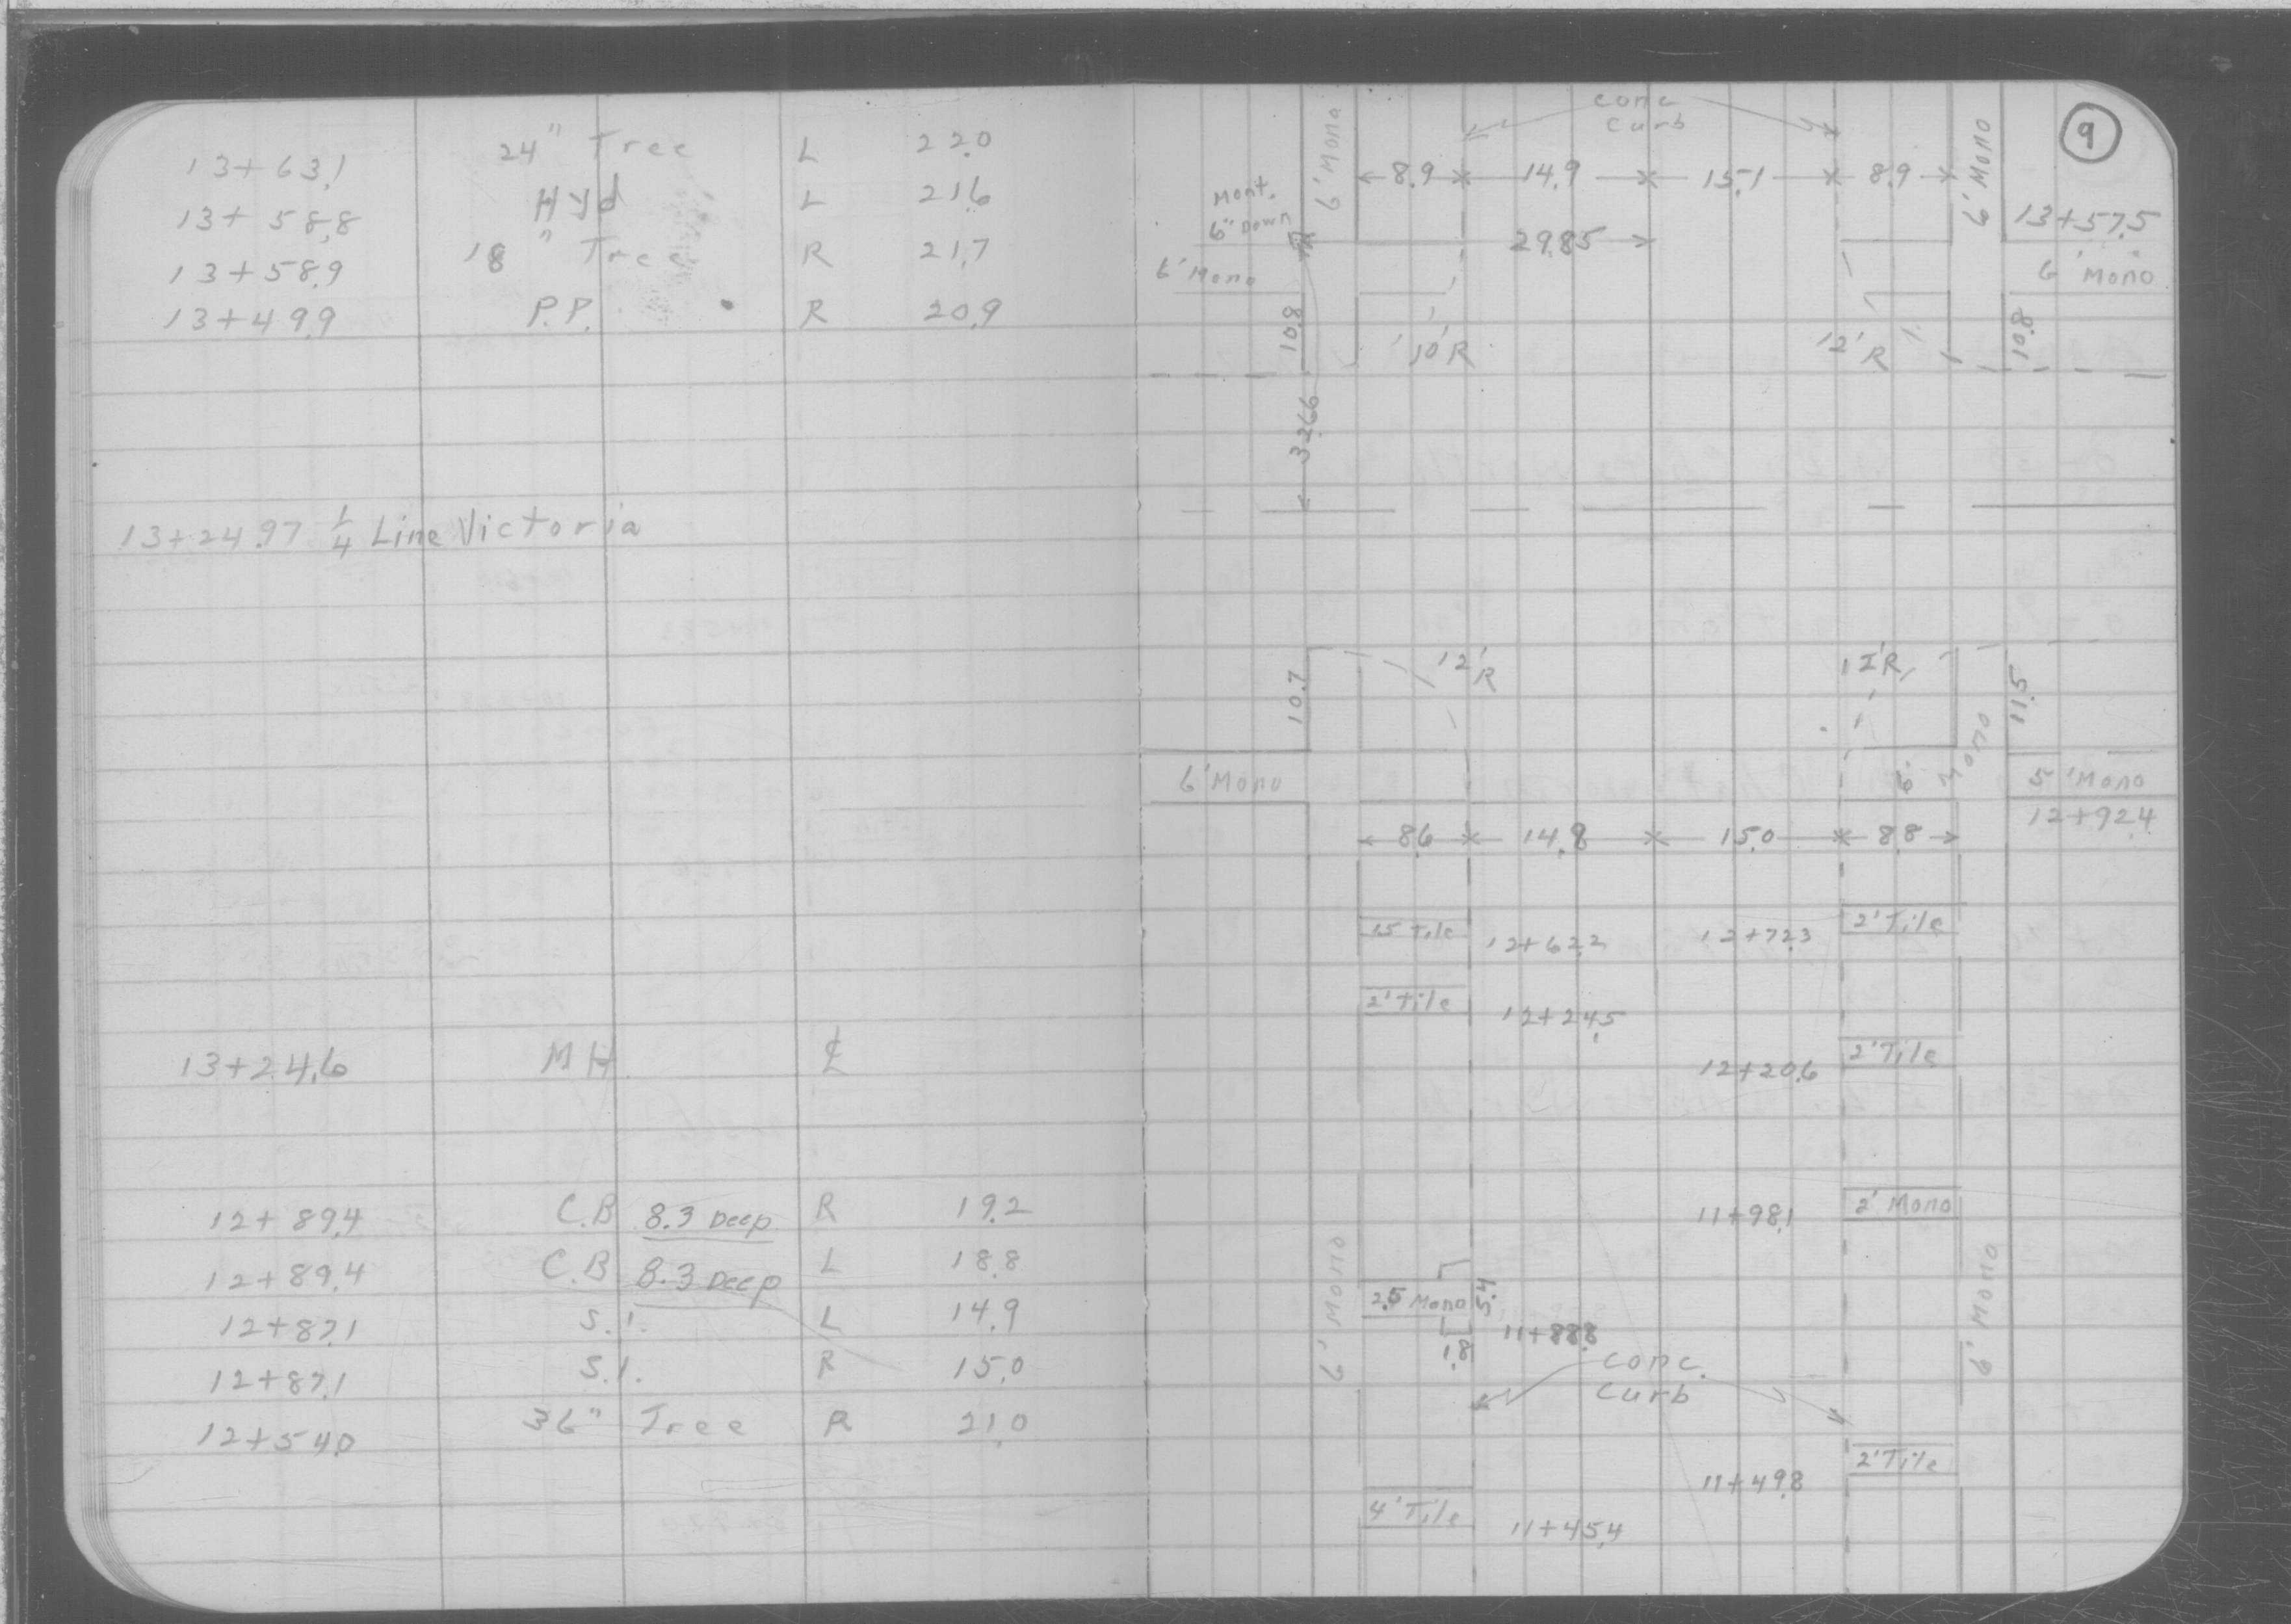 13+63.1 24" Tree L 22.0
13+58.8 Hyd L 21.6
13+58.9 18" Tree R 21.7
13+49.9 P.P. R 20.9
13+24.97 1/4 Line Victoria
13+24.6 MH ℄
12+89.4 C.B 8.3 Deep R 19.2
12+89.4 C.B 8.3 Deep L 18.8
12+87.1 S.I. L 14.9
12+87.1 S.I. R 15.0
12+54.0 36" Tree R 21.0
9
conc
curb
6' Mono
6' Mono
8.9 14.9 15.1 8.9
Mont.
6" Down
29.85
13+57.5
6' Mono
6' Mono
10.8
10'R
12'R
10.8
32.66
12'R
12'R
10.7
11.5
6' Mono
6' Mono
5' Mono
12+92.4
8.6 14.8 15.0 8.8
1.5 Tile 12+62.2
12+72.3 2' Tile
2' Tile 12+24.5
12+20.6 2' Tile
11+98.1 2' Mono
6' Mono
6' Mono
2.5 Mono 5.4
11+88.8
1.8
conc.
curb
11+49.8 2' Tile
4' Tile 11+45.4